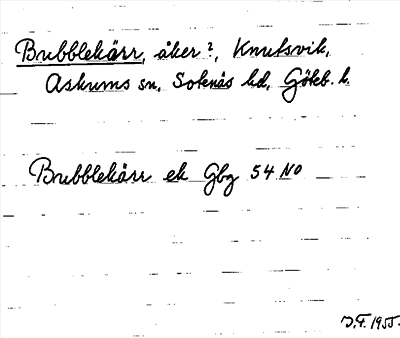 Brubblekärr, åker?, Knutsvik,
Askums sn, Sotenäs hd, Göteb. l.
Brubblekärr ek Gbg 54 NO
J.F. 1955.